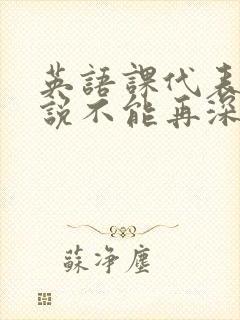 英語課代表
說不能再深
蘇淨塵